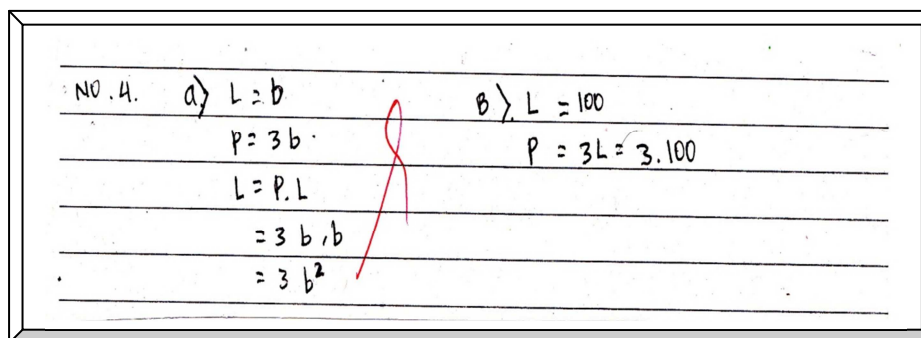 NO.4. a) L = b
P = 3b.
L = P.L
= 3 b.b
= 3 b²
B). L = 100
P = 3L = 3.100